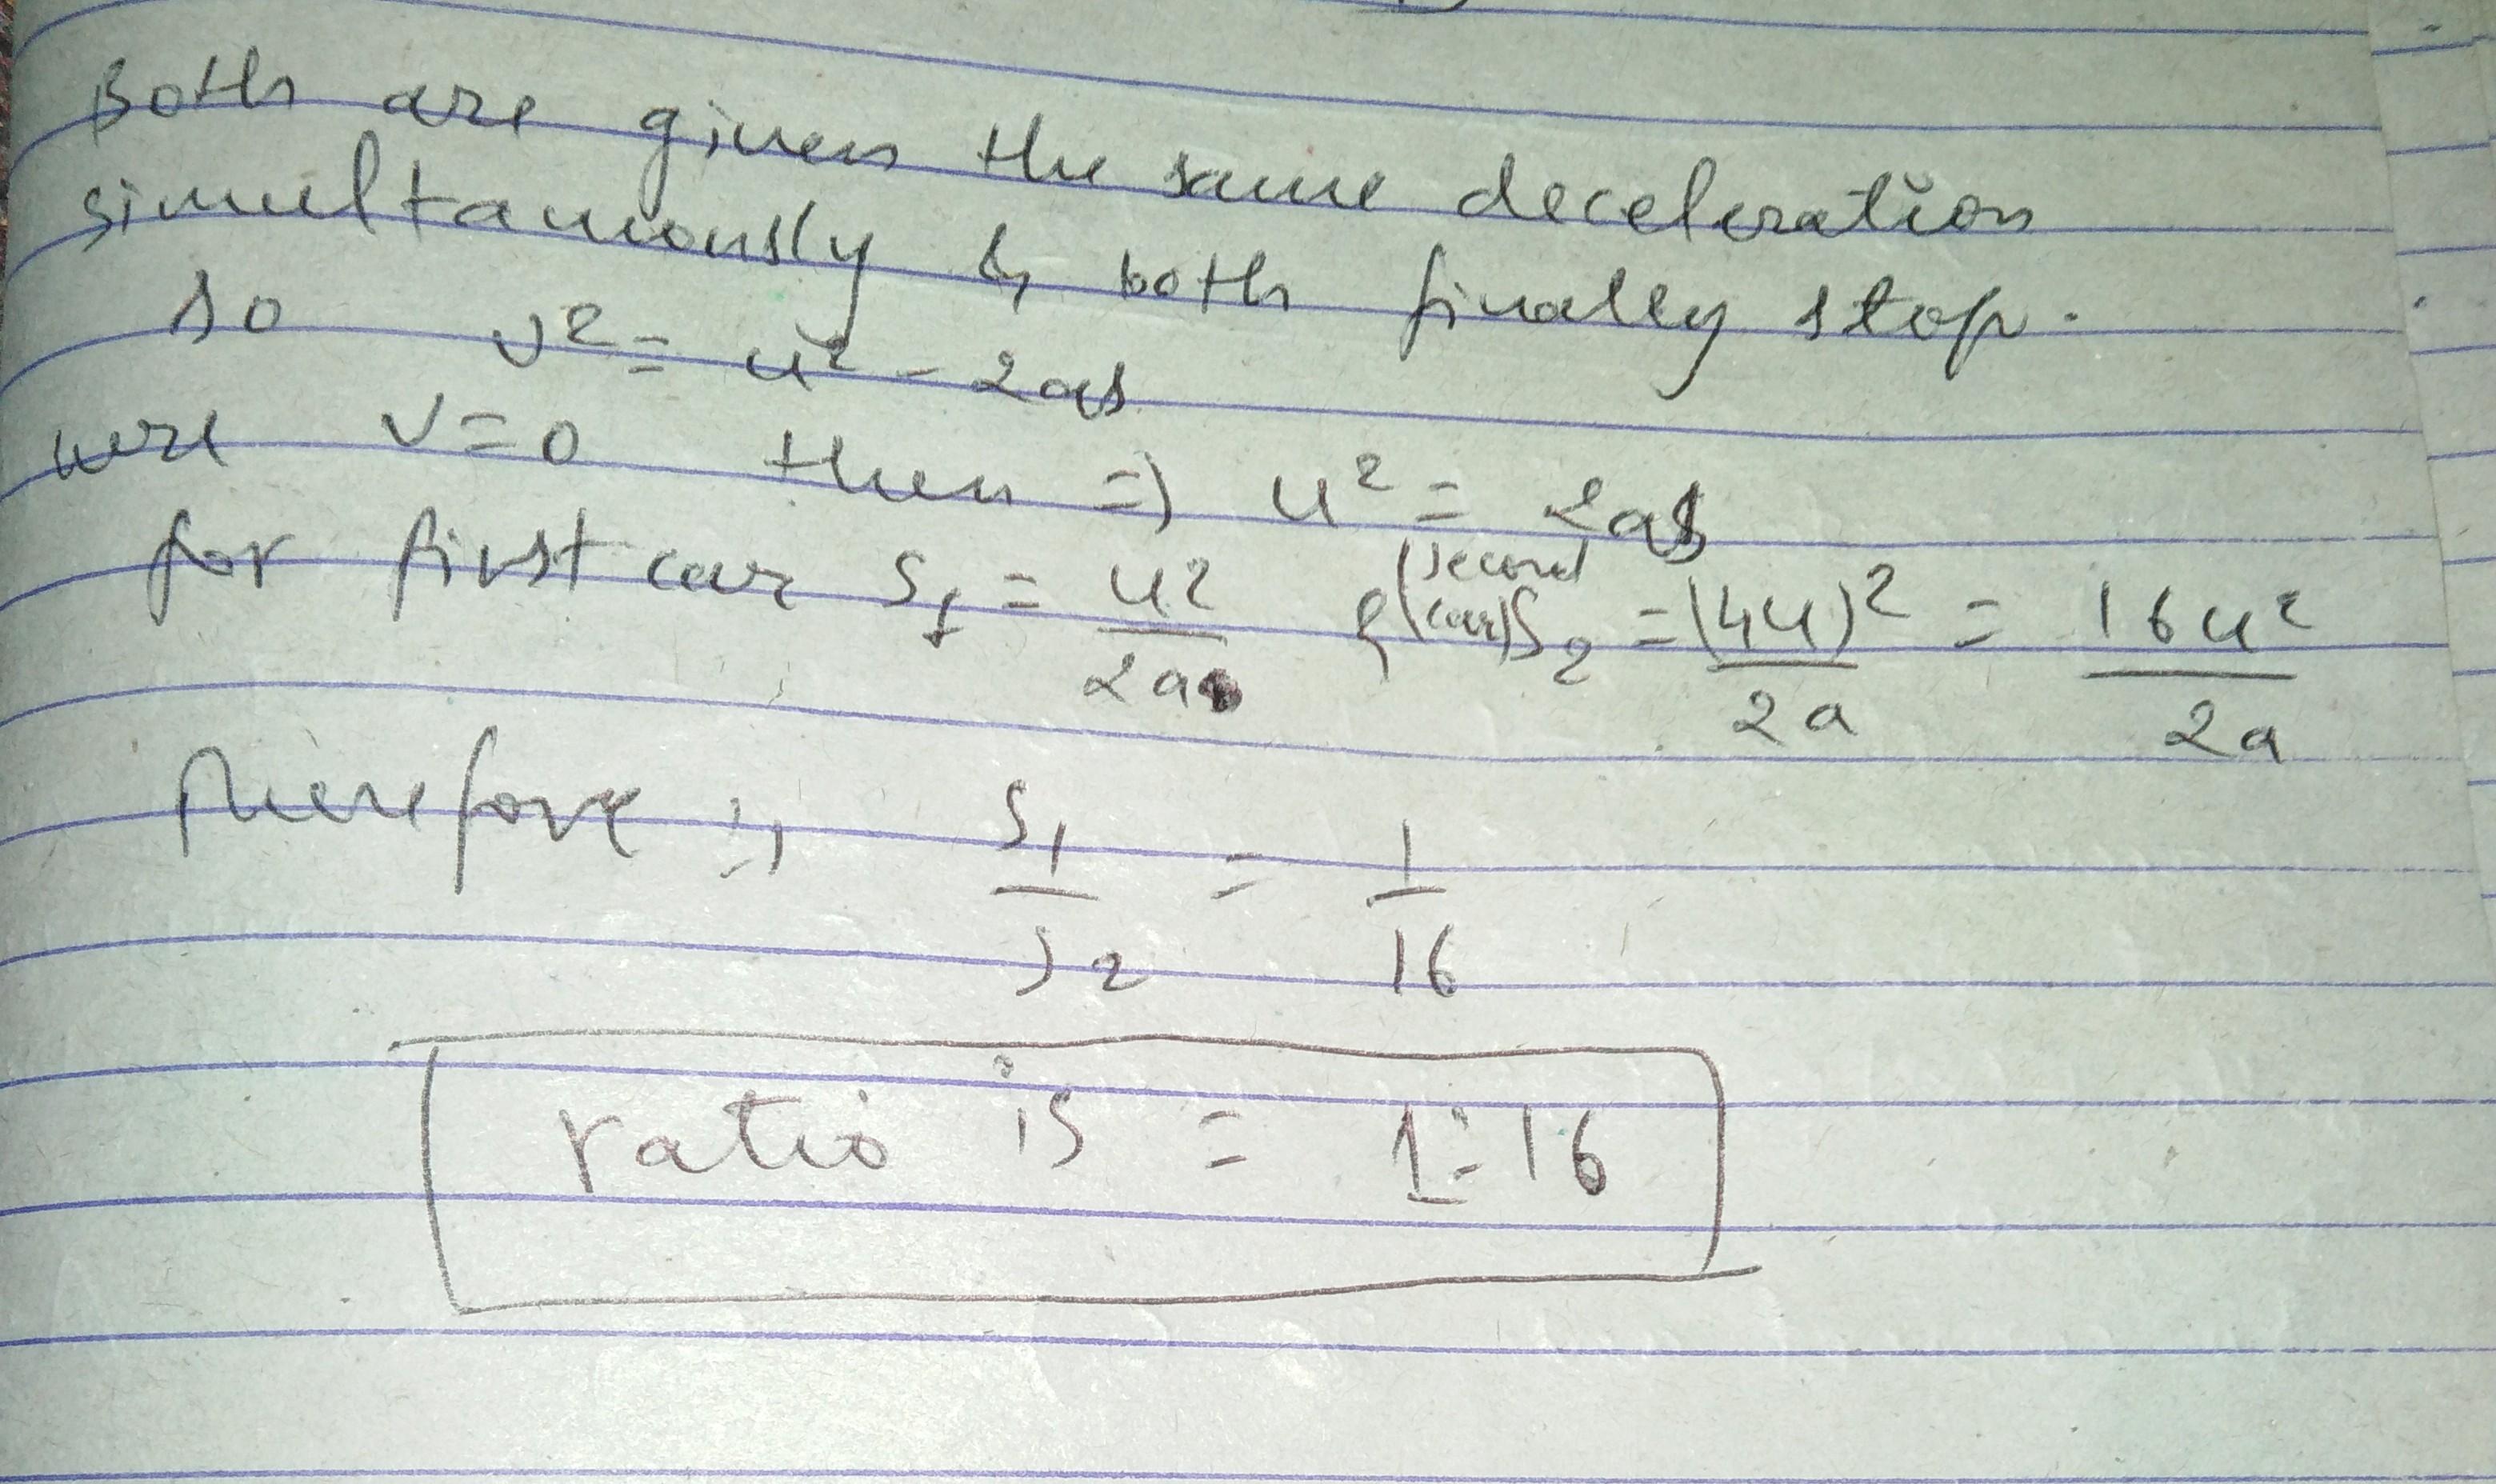 Both are given the same deceleration
simultaneously & both finally stop.
so v² = u² - 2as
here v=0 then => u² = 2as
for first car S₁ = u²/2a & (second car) S₂ = (4u)²/2a = 16u²/2a
therefore, S₁/S₂ = 1/16
ratio is = 1:16